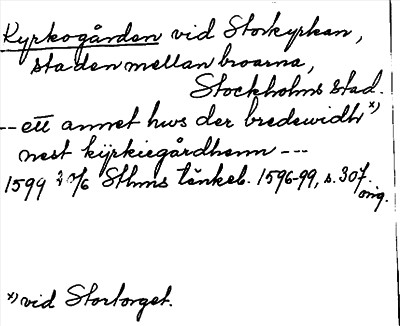 Kyrkogården vid Storkyrkan,
staden mellan broarna,
Stockholms stad.
-- ett annet hws der bredewidh x)
nest kijrkiegårdhenn ---
1599 2/6 Sthms tänkeb. 1596-99, s. 307.
orig.
x) vid Stortorget.